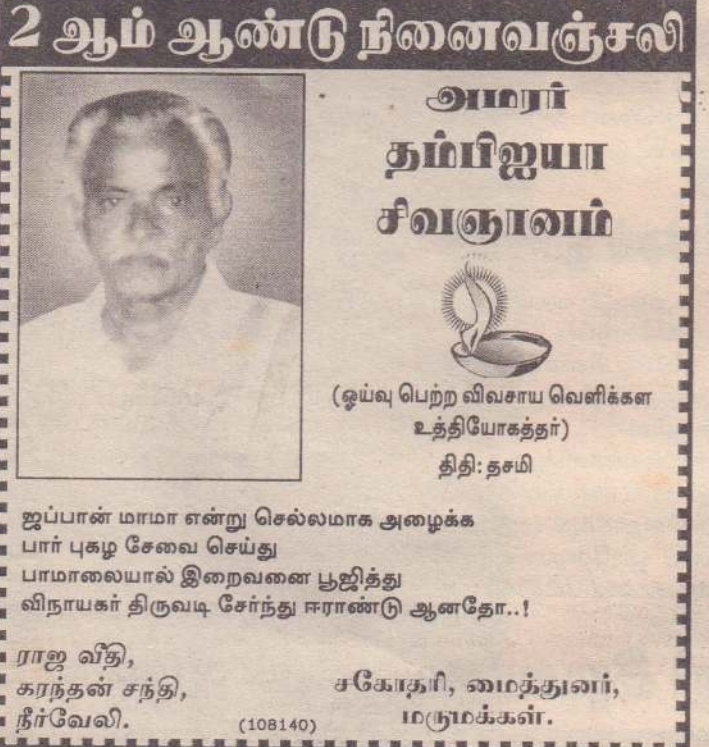 2 ஆம் ஆண்டு நினைவஞ்சலி
அமரர்
தம்பிஐயா
சிவஞானம்
(ஓய்வு பெற்ற விவசாய வெளிக்கள
உத்தியோகத்தர்)
திதி: தசமி
ஜப்பான் மாமா என்று செல்லமாக அழைக்க
பார் புகழ சேவை செய்து
பாமாலையால் இறைவனை பூஜித்து
விநாயகர் திருவடி சேர்ந்து ஈராண்டு ஆனதோ..!
ராஜ வீதி,
கரந்தன் சந்தி,
நீர்வேலி.
(108140)
சகோதரி, மைத்துனர்,
மருமக்கள்.